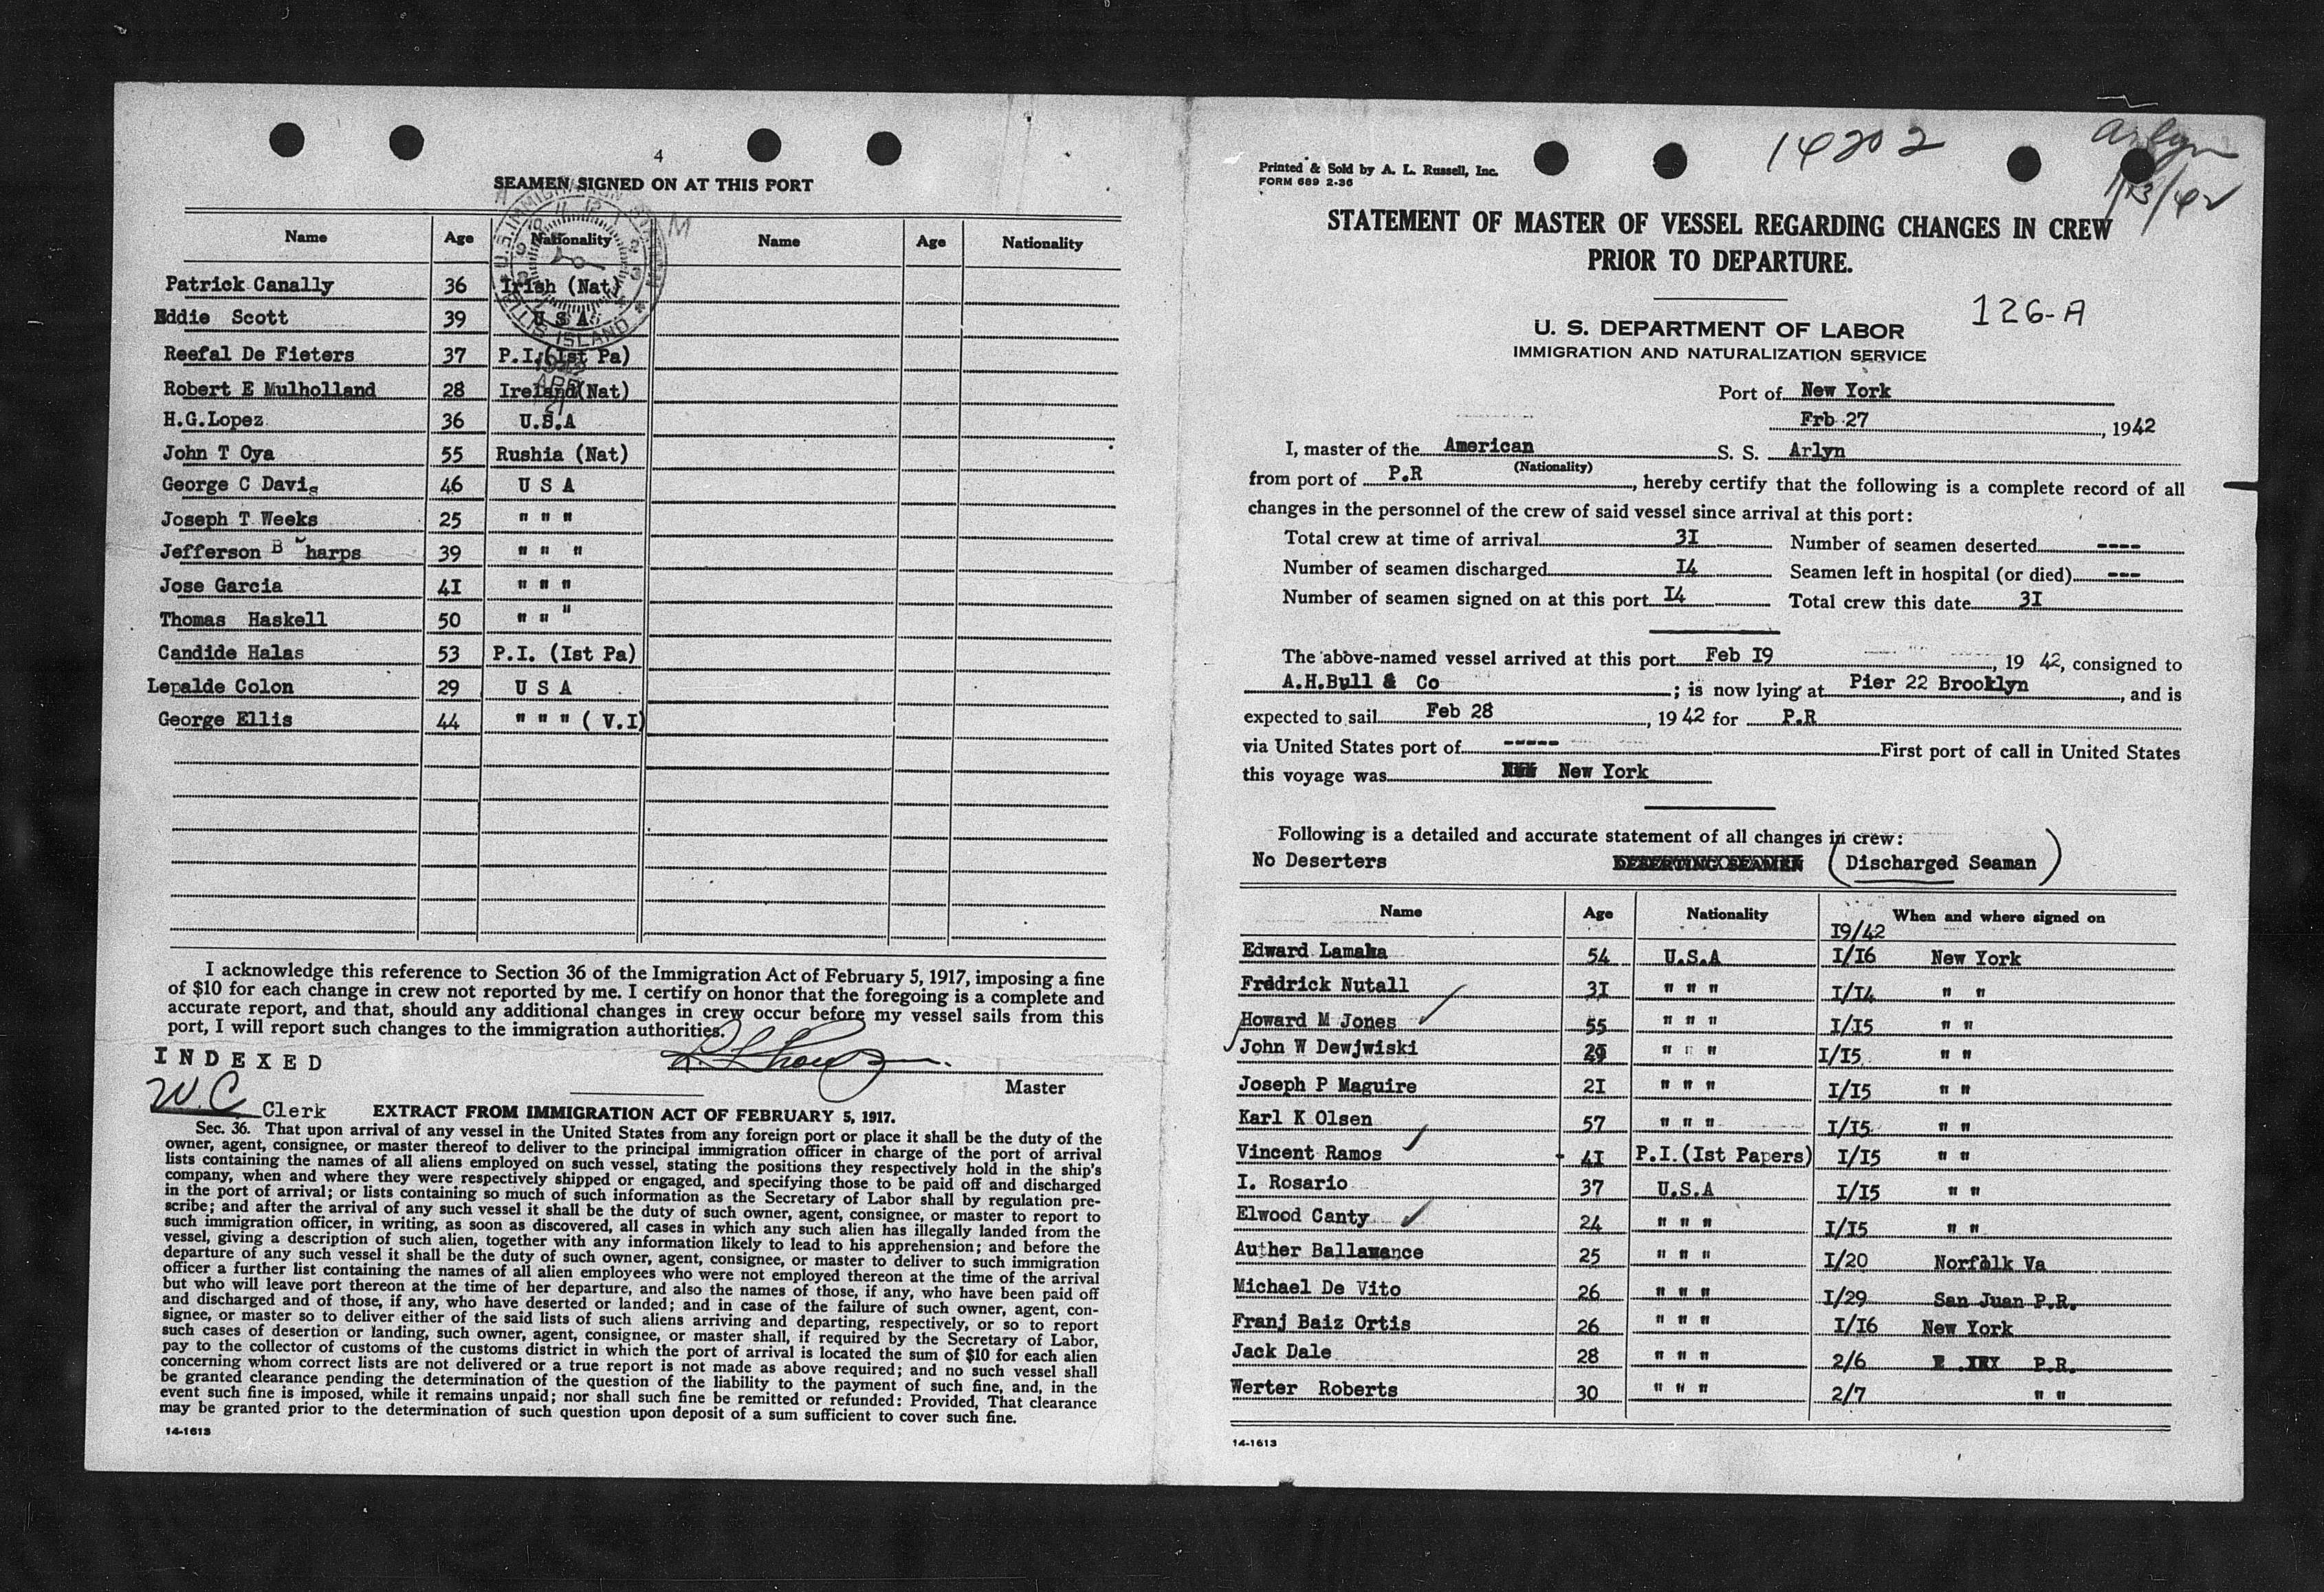 4
SEAMEN SIGNED ON AT THIS PORT
Name Age Nationality Name Age Nationality
Patrick Canally 36 Irish (Nat)
Eddie Scott 39 U S A
Reefal De Fieters 37 P.I.(Ist Pa)
Robert E Mulholland 28 Ireland(Nat)
H.G.Lopez 36 U.S.A
John T Oya 55 Rushia (Nat)
George C Davis 46 U S A
Joseph T Weeks 25 " " "
Jefferson B harps 39 " " "
Jose Garcia 4I " " "
Thomas Haskell 50 " " "
Candide Halas 53 P.I. (Ist Pa)
Lepalde Colon 29 U S A
George Ellis 44 " " " ( V.I)
I acknowledge this reference to Section 36 of the Immigration Act of February 5, 1917, imposing a fine
of $10 for each change in crew not reported by me. I certify on honor that the foregoing is a complete and
accurate report, and that, should any additional changes in crew occur before my vessel sails from this
port, I will report such changes to the immigration authorities.
INDEXED
Master
W.C Clerk
EXTRACT FROM IMMIGRATION ACT OF FEBRUARY 5, 1917.
Sec. 36. That upon arrival of any vessel in the United States from any foreign port or place it shall be the duty of the
owner, agent, consignee, or master thereof to deliver to the principal immigration officer in charge of the port of arrival
lists containing the names of all aliens employed on such vessel, stating the positions they respectively hold in the ship's
company, when and where they were respectively shipped or engaged, and specifying those to be paid off and discharged
in the port of arrival; or lists containing so much of such information as the Secretary of Labor shall by regulation pre-
scribe; and after the arrival of any such vessel it shall be the duty of such owner, agent, consignee, or master to report to
such immigration officer, in writing, as soon as discovered, all cases in which any such alien has illegally landed from the
vessel, giving a description of such alien, together with any information likely to lead to his apprehension; and before the
departure of any such vessel it shall be the duty of such owner, agent, consignee, or master to deliver to such immigration
officer a further list containing the names of all alien employees who were not employed thereon at the time of the arrival
but who will leave port thereon at the time of her departure, and also the names of those, if any, who have been paid off
and discharged and of those, if any, who have deserted or landed; and in case of the failure of such owner, agent, con-
signee, or master so to deliver either of the said lists of such aliens arriving and departing, respectively, or so to report
such cases of desertion or landing, such owner, agent, consignee, or master shall, if required by the Secretary of Labor,
pay to the collector of customs of the customs district in which the port of arrival is located the sum of $10 for each alien
concerning whom correct lists are not delivered or a true report is not made as above required; and no such vessel shall
be granted clearance pending the determination of the question of the liability to the payment of such fine, and, in the
event such fine is imposed, while it remains unpaid; nor shall such fine be remitted or refunded: Provided, That clearance
may be granted prior to the determination of such question upon deposit of a sum sufficient to cover such fine.
14-1613
14202
Arlyn
1/13/42
Printed & Sold by A. L. Russell, Inc.
FORM 689 2-36
STATEMENT OF MASTER OF VESSEL REGARDING CHANGES IN CREW
PRIOR TO DEPARTURE.
126-A
U. S. DEPARTMENT OF LABOR
IMMIGRATION AND NATURALIZATION SERVICE
Port of New York
Frb 27, 1942
I, master of the American S. S. Arlyn
(Nationality)
from port of P.R, hereby certify that the following is a complete record of all
changes in the personnel of the crew of said vessel since arrival at this port:
Total crew at time of arrival 3I Number of seamen deserted ----
Number of seamen discharged I4 Seamen left in hospital (or died) ---
Number of seamen signed on at this port I4 Total crew this date 3I
The above-named vessel arrived at this port Feb I9, 19 42, consigned to
A.H.Bull & Co; is now lying at Pier 22 Brooklyn, and is
expected to sail Feb 28, 19 42 for P.R
via United States port of ----- First port of call in United States
this voyage was New York
Following is a detailed and accurate statement of all changes in crew:
No Deserters DESERTING SEAMEN (Discharged Seaman)
Name Age Nationality When and where signed on
I9/42
Edward Lamaka 54 U.S.A I/I6 New York
Frddrick Nutall 3I " " " I/I4 " "
Howard M Jones 55 " " " I/I5 " "
John W Dewjwiski 29 " " " I/I5 " "
Joseph P Maguire 2I " " " I/I5 " "
Karl K Olsen 57 " " " I/I5 " "
Vincent Ramos 4I P.I.(Ist Papers) I/I5 " "
I. Rosario 37 U.S.A I/I5 " "
Elwood Canty 24 " " " I/I5 " "
Auther Ballawance 25 " " " I/20 Norfalk Va
Michael De Vito 26 " " " I/29 San Juan P.R.
Franj Baiz Ortis 26 " " " I/I6 New York
Jack Dale 28 " " " 2/6 P.R.
Werter Roberts 30 " " " 2/7 " "
14-1613